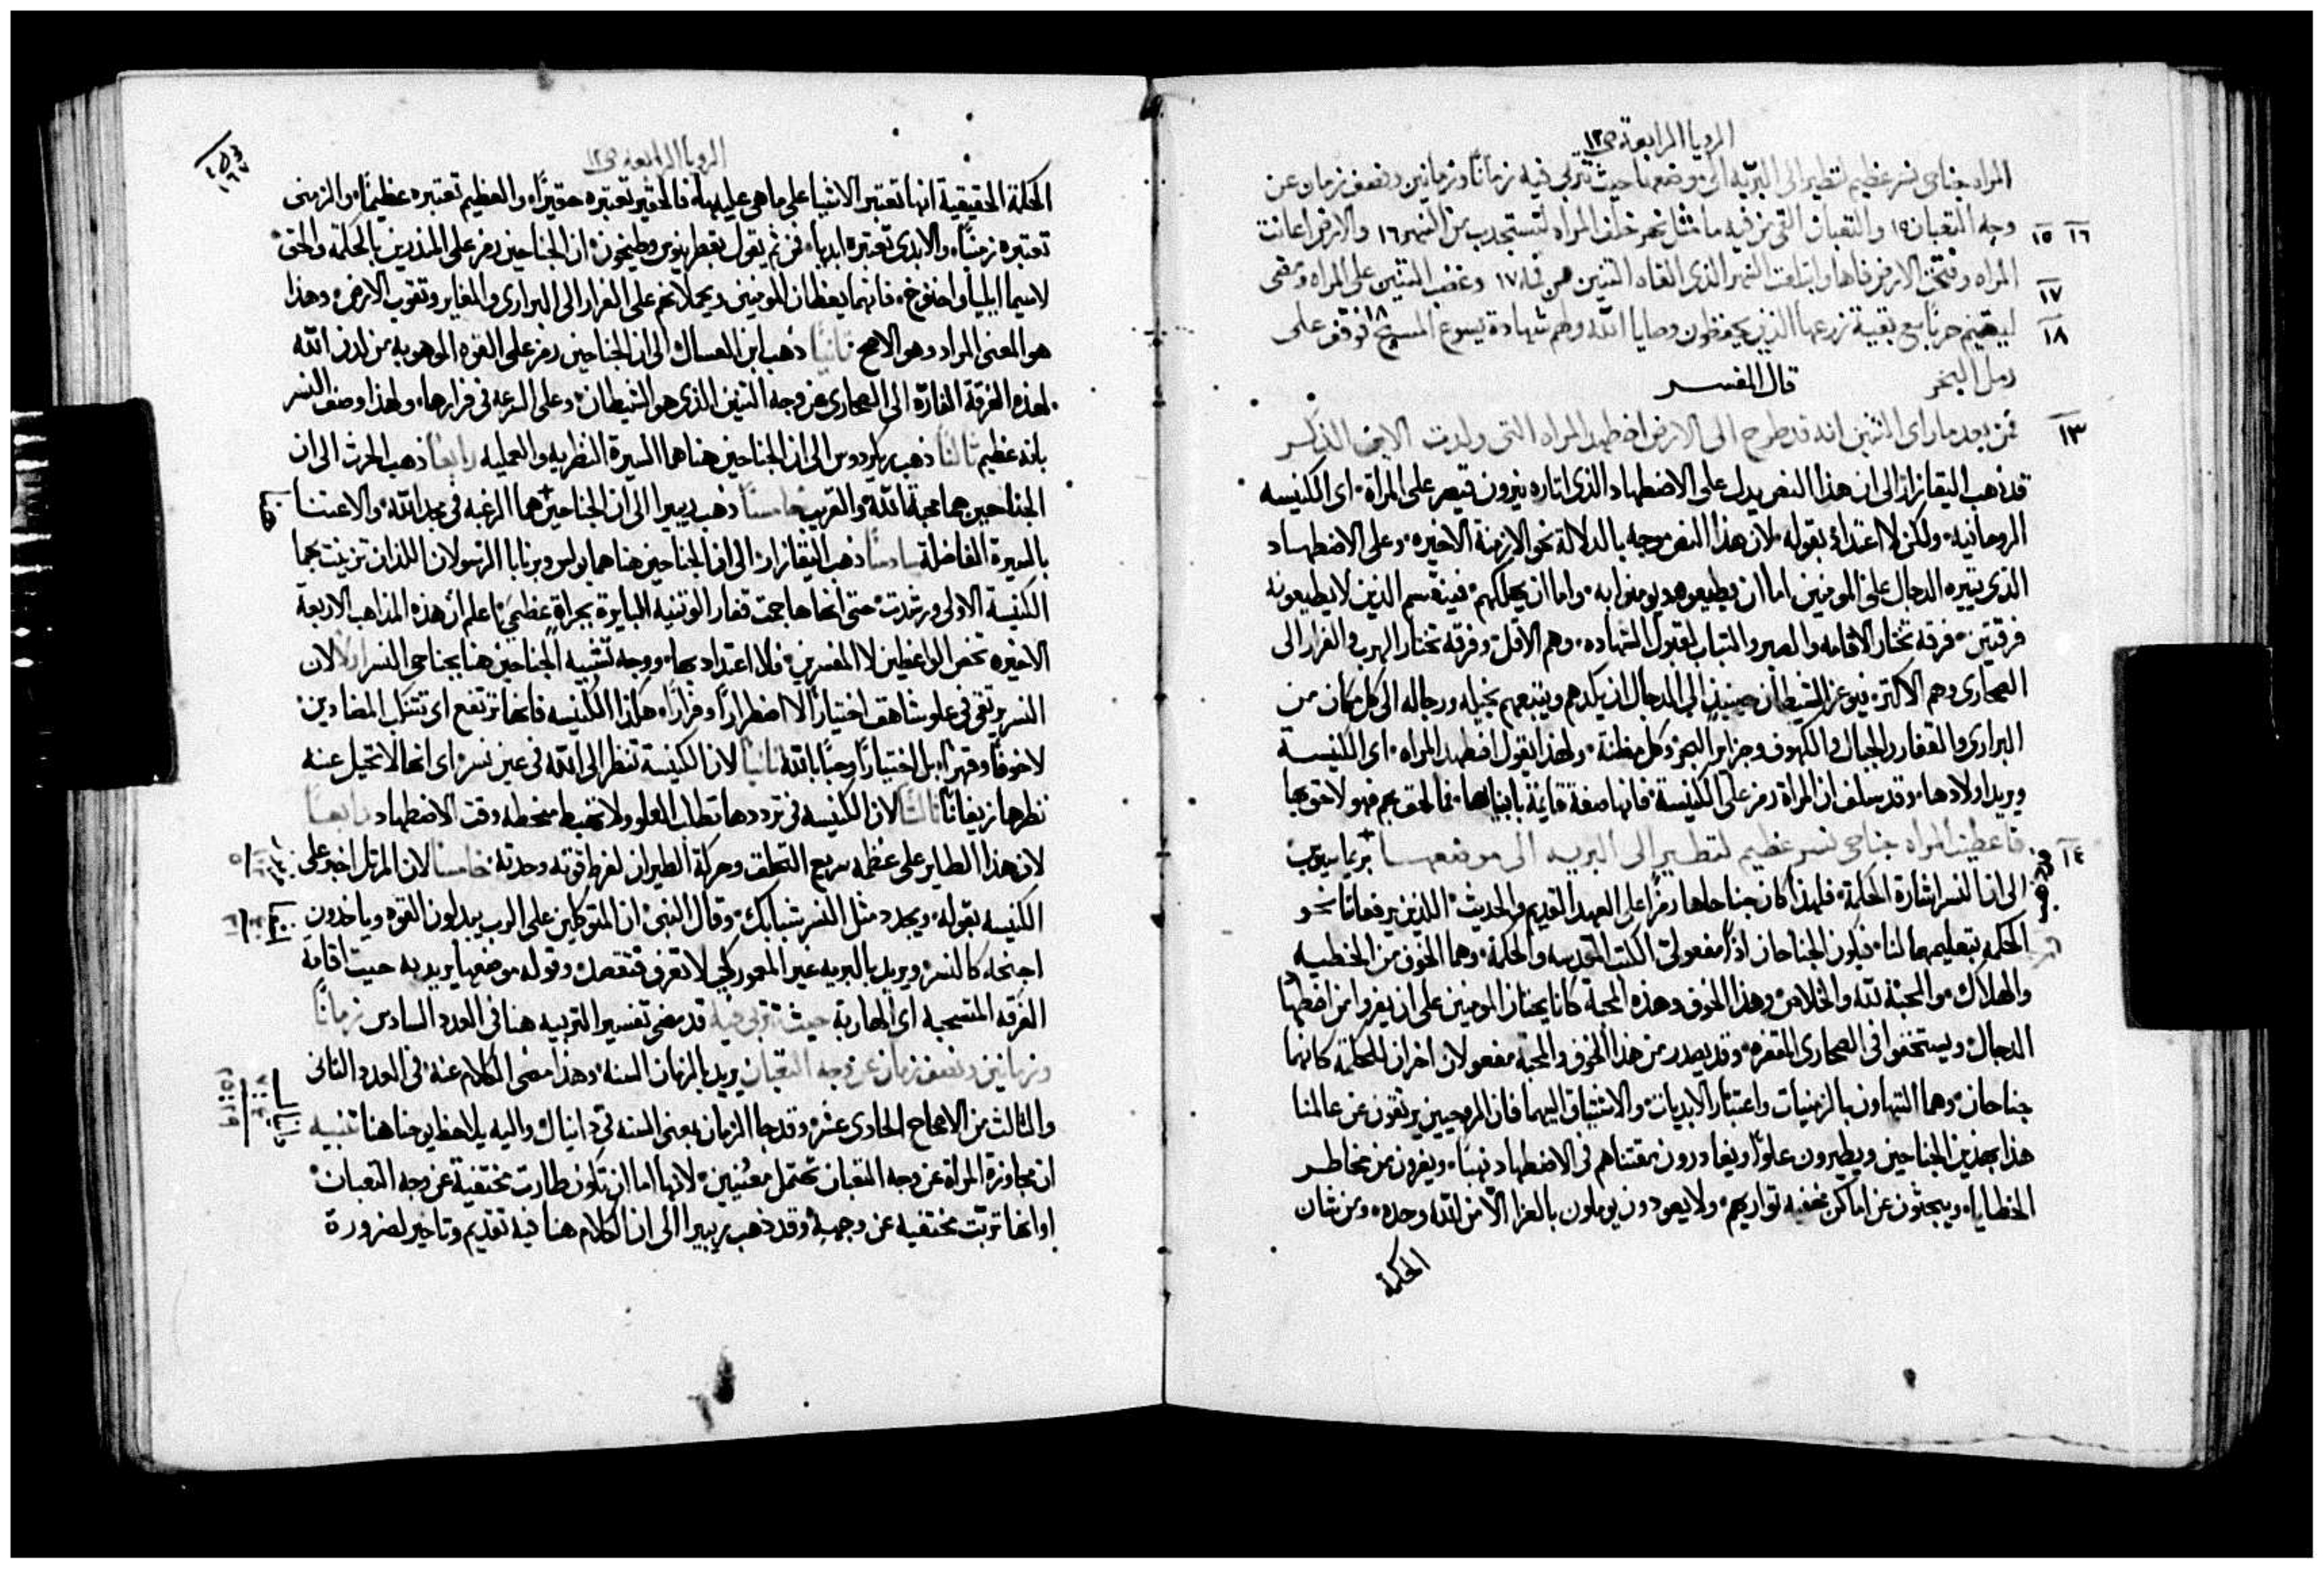 الرويا الرابعة ص١٢
المراه جناحي نسر عظيم لتطير الى البريه الى موضعها حيث تتربى فيه زمانًا وزمانين ونصف زمان عن
وجه الثعبان ١٥ والثعبان القى من فيه ما مثل نهر خلف المراه لتستجدب من النهر ١٦ والارض اعانت
١٥ ١٦
المراه وفتحت الارض فاها وابتلعت النهر الذي القاه التنين من فيه ١٧ وغضب التنين على المراه ومضى
١٧
ليصنع حربًا مع بقية زرعها الذين يحفظون وصايا الله ولهم شهادة يسوع المسيح ١٨ فوقف على
١٨
رمل البحر قال المفسر
فمن بعد ما راى التنين انه قد طرح الى الارض اضطهد المراه التي ولدت الابن الذكر
١٣
قد ذهب اليقازار الى ان هذا النص يدل على الاضطهاد الذي اثاره نيرون قيصر على المراة اي الكنيسه
الرومانيه ولكن لا اعتداد بقوله لان هذا النص موجه بالدلالة نحو الازمنة الاخيره وعلى الاضطهاد
الذي يثيره الدجال على المومنين اما ان يطيعوه ويومنوا به واما ان يهلكهم فينقسم الذين لا يطيعونه
فرقتين فرقه تختار الاقامه والصبر والثبات لقبول الشهاده وهم الاقل وفرقه تختار الهرب والفرار الى
الصحاري وهم الاكثر فيوعز الشيطان حينيذ الى الدجال ان يكدهم ويتبعهم بخيله ورجاله الى كل مكان من
البراري والقفار والجبال والكهوف وجزاير البحر وكل مظنة ولهذا يقول اضطهد المراه اي الكنيسة
ويريد اولادها وقد سلف ان المراة رمز على الكنيسة فانها صفة قايمة بابنايها فما لحق بهم فهو لاحق بها
فاعطيت المراه جناحي نسر عظيم لتطير الى البريه الى موضعها بريماسيوس
١٤
ذهب
الى ان النسر اشارة الحكمة فلهذا كان جناحاها رمزًا على العهد القديم والحديث اللذين يرفعاننا نحو
الحكمه بتعليمهما لنا فيكون الجناحان اذًا مفعولي الكتب المقدسه والحكمة وهما الخوف من الخطيه
والهلاك والمحبة لله والخلاص وهذا الخوف وهذه المحبة كانا يحثان المومنين على ان يفروا من اضطهاد
الدجال ويستخفوا في الصحاري المقفره وقد يصدر من هذا الخوف والمحبة مفعولان اخران للحكمة كانهما
جناحان وهما التهاون بالزمنيات واعتبار الابديات والاشتياق اليهما فان الروحيين يرتقون عن عالمنا
هذا بهذين الجناحين ويطيرون علوًا ويغادرون مقتناهم في الاضطهاد نهبًا ويفرون من مخاطر
الخطايا ويبحثون عن اماكن مخفيه تواريهم ولا يعودون يوملون بالعزا الا من الله وحده ومن شان
الحكمة
الرويا الرابعه ص١٢
الحكمة الحقيقية انها تعتبر الاشيا على ما هي عليه فالحقير تعتبره حقيرًا والعظيم تعتبره عظيمًا والزمني
تعتبره زمنيًا والابدي تعتبره ابديًا فمن ثم يقول بقطرينوس وطيخون ان الجناحين رمز على المنذرين بالحكمة والحق
لاسيما ايليا واخنوخ فانهما يعظان المومنين ويحملانهم على الفرار الى البراري والمغاير وثقوب الارض وهذا
هو المعنى المراد وهو الاصح ثانيًا ذهب ابن العسال الى ان الجناحين رمز على القوه الموهوبه من لدن الله
لهذه الفرقة الفارّة الى الصحاري عن وجه التنين الذي هو الشيطان وعلى السرعه في فرارها ولهذا وصف النسر
بانه عظيم ثالثًا ذهب ريكردوس الى ان الجناحين هنا هما السيرة النظريه والعمليه رابعًا ذهب الحرث الى ان
الجناحين هما محبة الله والقريب خامسًا ذهب ريبيرا الى ان الجناحين هما الرغبه في مجد الله والاعتنا
بالسيرة الفاضلة سادسًا ذهب اليقازار الى ان الجناحين هنا هما بولس وبرنابا الرسولان اللذان تزينت بهما
الكنيسة الاولى ورشدت حتى انها هاجمت قفار الوثنيه البايرة بجراة عظمى اعلم ان هذه المذاهب الاربعة
الاخيره تخص الواعظين لا المفسرين فلا اعتداد بها ووجه تشبيه الجناحين هنا بجناحي النسر اولا لان
النسر يرتقي في علو شاهق اختيارًا لا اضطرارًا وفرارًا هكذا الكنيسه فانها ترتفع اي تتنكب المضادين
لا خوفًا وقهرًا بل اختيارًا وحبًا بالله ثانيًا لان الكنيسة تنظر الى الله في عين نسر اي انها لا تحيل عنه
نظرها زيغانًا ثالثًا لان الكنيسه في ترددها تطلب العلو ولا تهبط منحطه وقت الاضطهاد رابعًا
لان هذا الطاير على عظمه سريع التحلق وحركة الطيران لفرط قوته وحدته خامسًا لان المرتل اخبر على
الكنيسه بقوله ويجدد مثل النسر شبابك وقال النبي ان المتوكلين على الرب يبدلون القوه وياخدون
اجنحه كالنسر ويريد بالبريه غير المعمور لكي لا تعرف فتقصد وقوله موضعها يريد به حيث اقامة
الفرقه المسيحيه اي الهاربة حيث تتربى فيه قد مضى تفسير التربيه هنا في العدد السادس زمانًا
وزمانين ونصف زمان عن وجه الثعبان يريد بالزمان السنه وهذا مضى الكلام عنه في العدد الثاني
والثالث من الاصحاح الحادي عشر وقد جا الزمان بمعنى السنه في دانيال واليه يلاحظ يوحنا هنا تنبيه
ان مجاوزة المراة عن وجه الثعبان تحتمل معنيين لانها اما ان تكون طارت مختفية عن وجه الثعبان
او انها تربّت مختفيه عن وجهه وقد ذهب ريبيرا الى ان الكلام هنا فيه تقديم وتاخير لضرورة